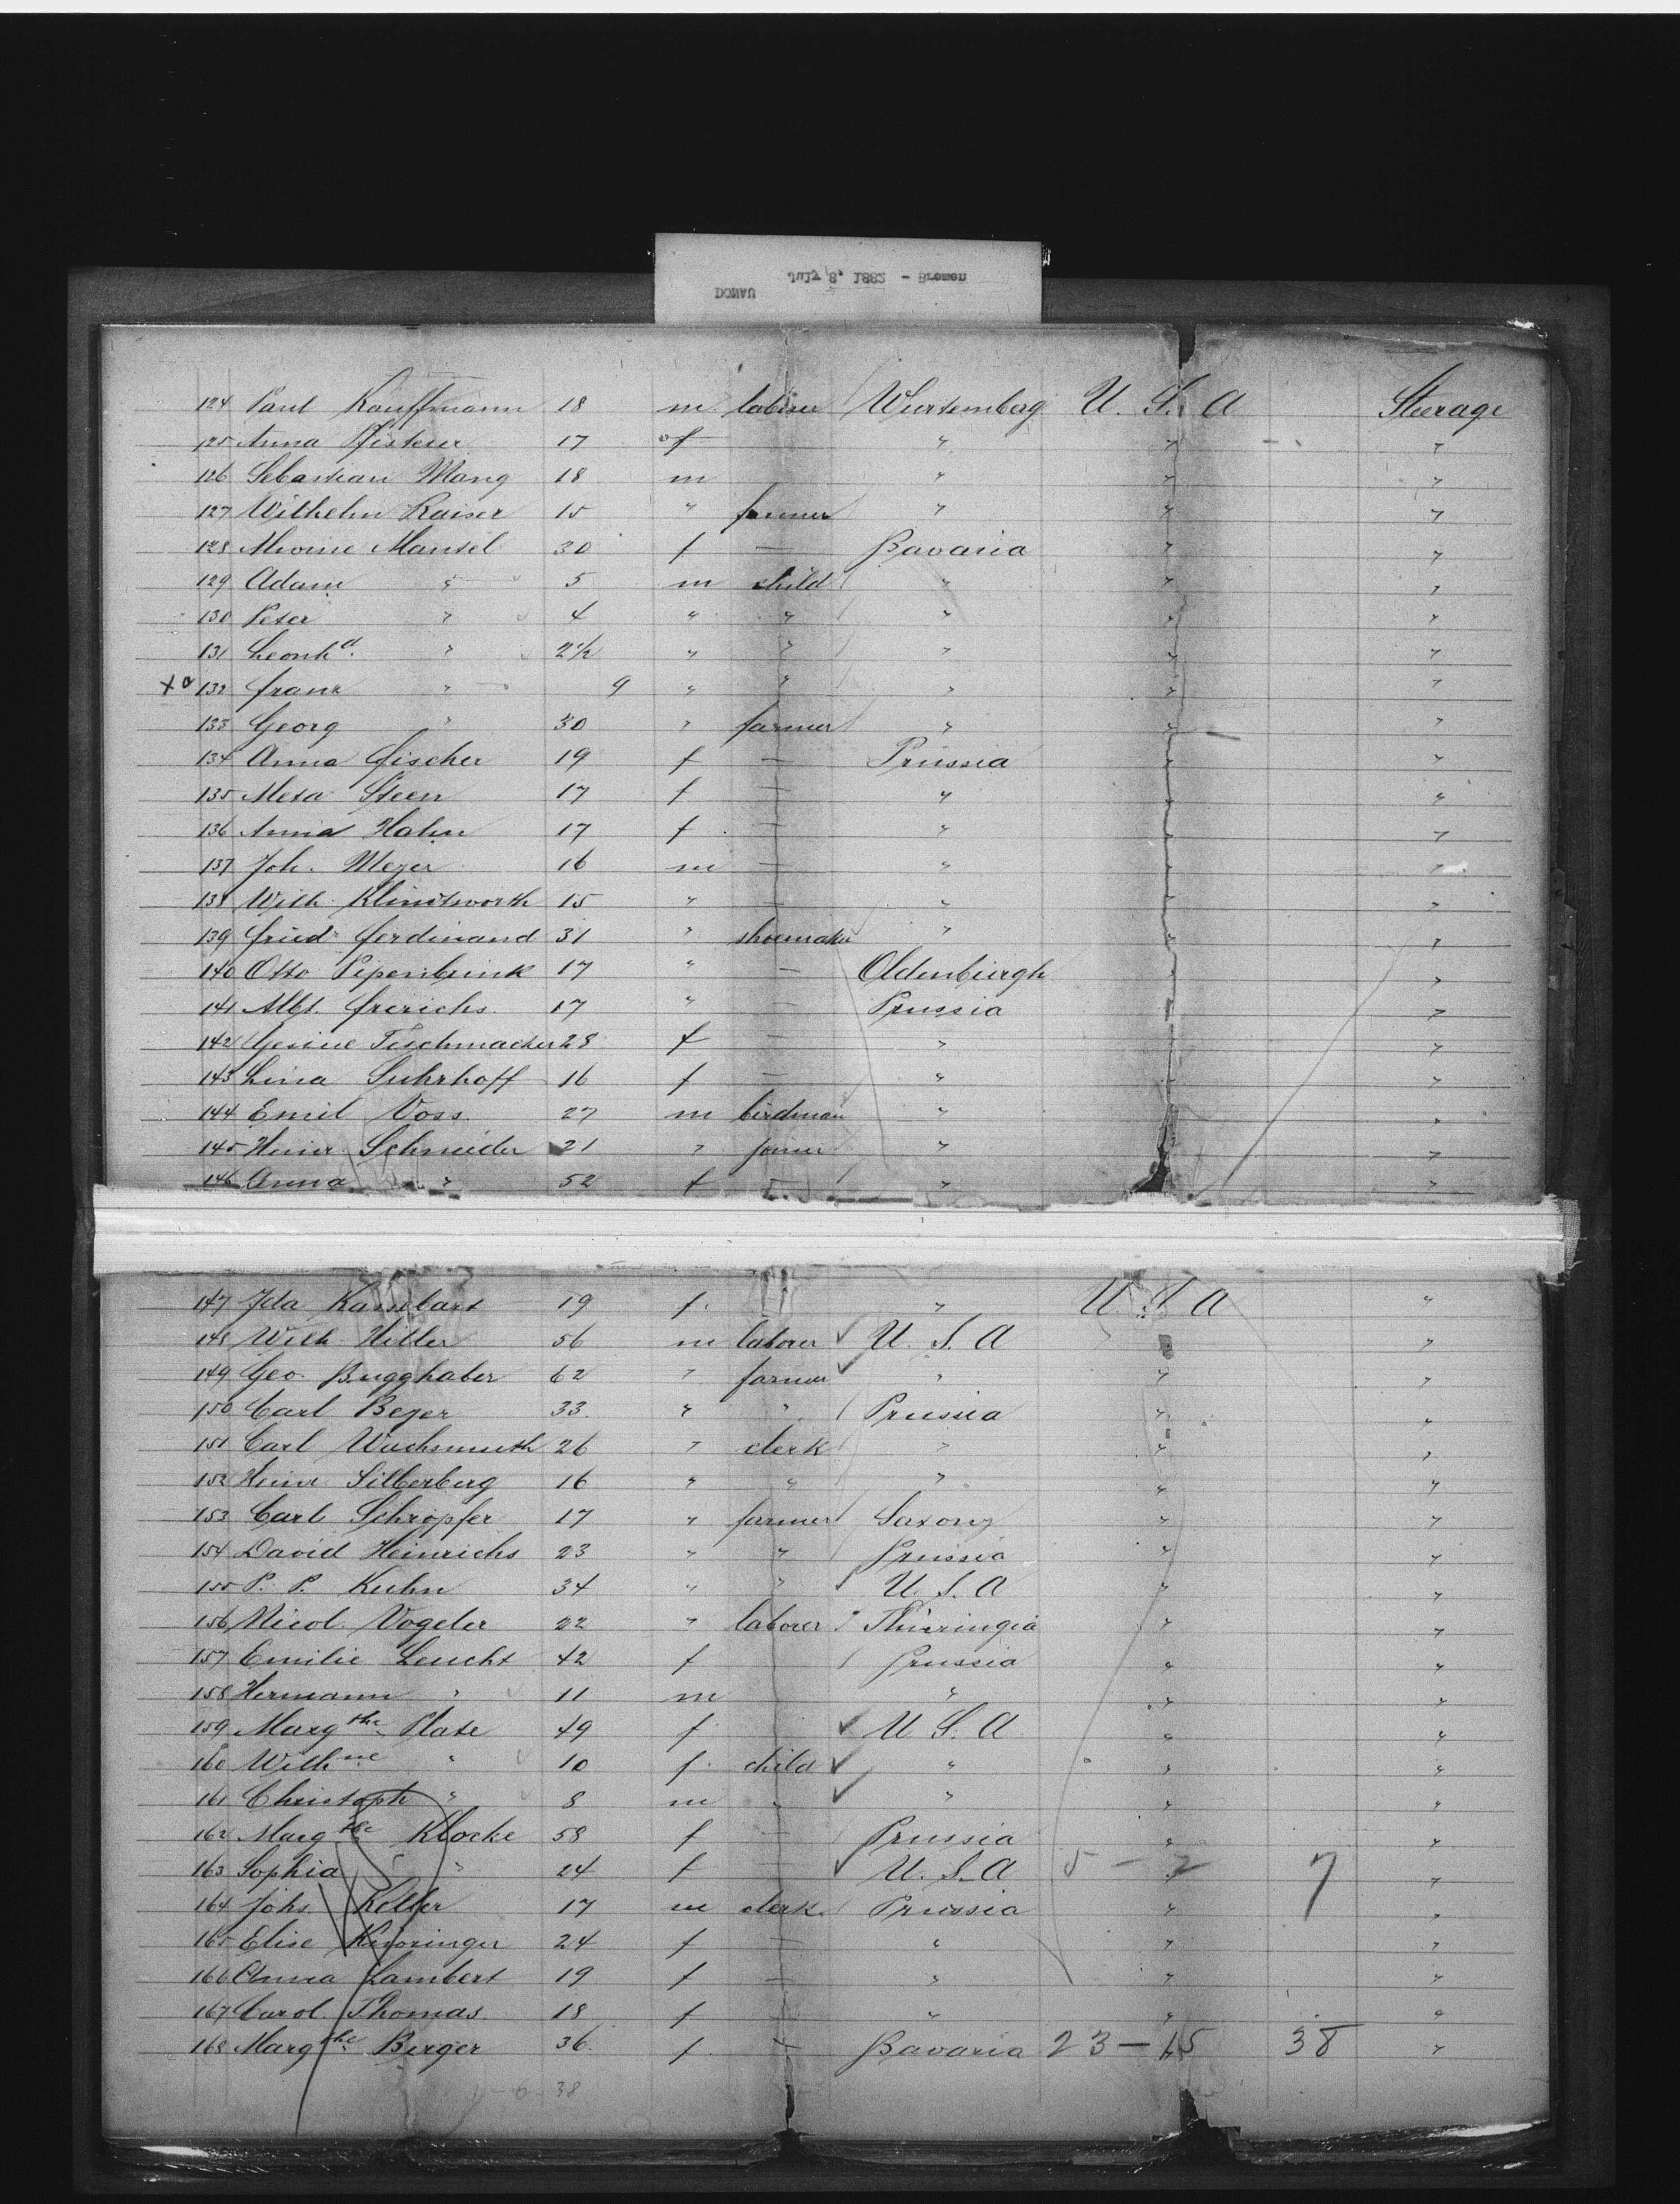 DONAU July 8, 1882 - Bremen
124 Paul Kauffmann 18 m laborer Wurtemberg U. S. A Steerage
125 Anna Pfisterer 17 f " " "
126 Sebastian Mang 18 m " " "
127 Wilhelm Kaiser 15 " farmer " " "
128 Mansel 30 f — Bavaria " "
129 Adam " 5 m child " " "
130 Peter " 4 " " " " "
131 Leonhd. " 2 1/2 " " " " "
132 Franz " 9 " " " " "
133 Georg " 30 " farmer " " "
134 Anna Fischer 19 f — Prussia " "
135 Meta Steen 17 f — " " "
136 Anna Hahn 17 f — " " "
137 Joh. Meyer 16 m — " " "
138 Wilh. Klindtworth 15 " — " " "
139 Friedr Ferdinand 31 " shoemaker " " "
140 Otto Pipenbrink 17 " — Oldenburgh " "
141 Albt. Frerichs 17 " — Prussia " "
142 Gesine Tischmacher 28 f — " " "
143 Lina Suhrhoff 16 f — " " "
144 Emil Voss 27 m birdman " " "
145 Heinr Schneider 21 " joiner " " "
146 Anna " 52 f — " " "
147 Ida 19 f. " U. S. A "
148 Wilh. Hiller 56 m laborer U. S. A " "
149 Geo. Bugghaber 62 " farmer " " "
150 Carl Beyer 33. " " Prussia " "
151 Carl Wachsmuth 26 " clerk " " "
152 Heinr. Silberberg 16 " " " " "
153 Carl Schröpfer 17 " farmer Saxony " "
154 David Heinrichs 23 " " Prussia " "
155 P. P. Kuhn 34 " " U. S. A " "
156 Nicol. Vogeler 22 " laborer Thüringia " "
157 Emilie Leucht 42 f Prussia " "
158 Hermann " 11 m " " "
159 Margthe Plate 49 f U. S. A " "
160 Wilhne " 10 f. child " " "
161 Christoph " 8 m " " " "
162 Margthe Klocke 58 f — Prussia " "
163 Sophia " 24 f — U. S. A 5 - 2 7 "
164 Johs. Keller 17 m clerk Prussia " "
165 Elise 24 f — " " "
166 Anna Lambert 19 f — " " "
167 Carol. Thomas 18 f " " "
168 Margthe Berger 36. f. — Bavaria 23 — 15 38 "
6 38